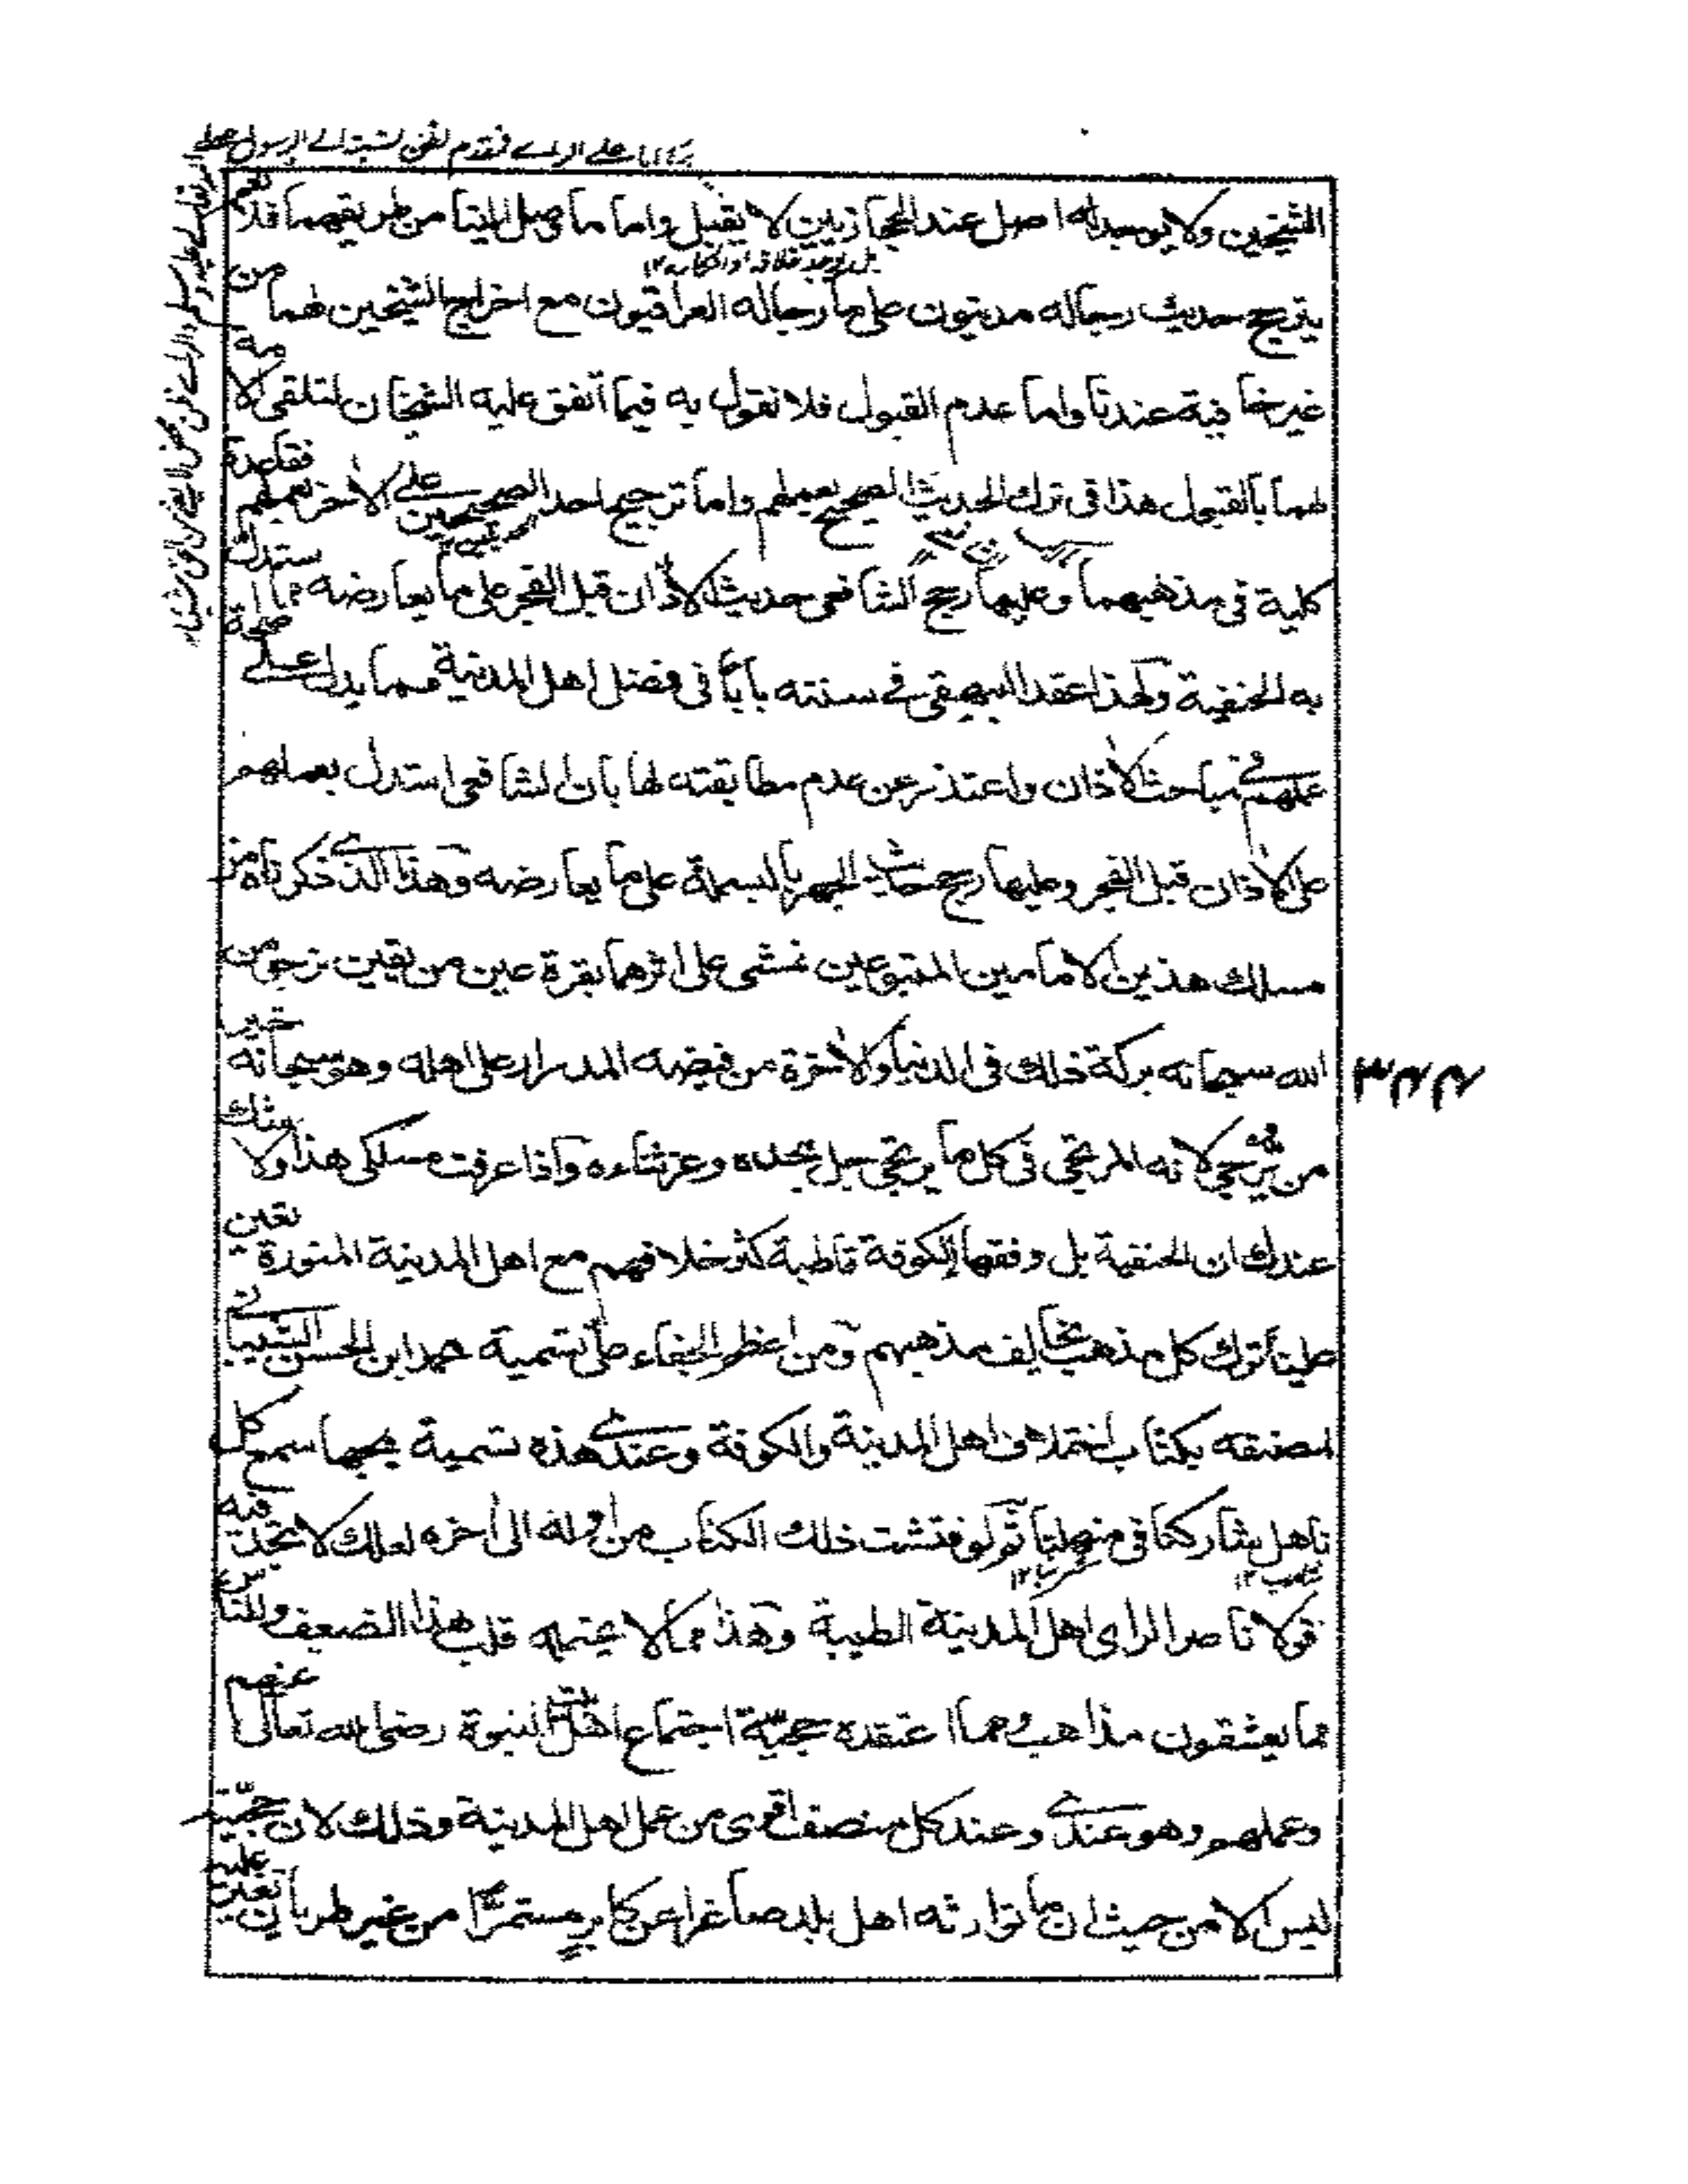 الشيخين ولا يوجد له اصل عند الحجازيين لا يقبل واما ما وصل الينا من طريقهما فلا نعم
يترجح حديث رجاله مدنيون على ما رجاله العراقيون مع اخراج الشيخين لهما من
غير خافية عندنا واما عدم القبول فلا نقول به فيما اتفق عليه الشيخان لتلقى الامة
لهما بالقبول هذا فى ترك الحديث الصحيح بعملهم واما ترجيح احد الصحيحين على الاخر بعملهم فقاعدة
كلية فى مذهبهما وعليها رجح الشافعى حديث الاذان قبل الفجر على ما يعارضه مما استدلت
به الحنفية ولهذا عقد البيهقى فے سننه بابا فى فضل اهل المدينة ومما يدل على صحة
عملهم فے مباحث الاذان واعتذر عن عدم مطابقته لها بان الشافعى استدل بعملهم
على الاذان قبل الفجر وعليها رجح حديث الجهر بالبسملة على ما يعارضه وهذا الذى ذكرناه من
مسلك هذين الامامين المتبوعين نمشى على اثرهما بقرة عين من يقين نرجو من
الله سبحانه بركة ذلك فى الدنيا والاخرة من فيضه المدرار على اهله وهو سبحانه خير
من يرجى لانه المرتجى فى كل ما يرتجى جل مجده وعز ثناءه واذا عرفت مسلكى هذا ولا شك
عندك ان الحنفية بل وفقهاء الكوفة قاطبة كثر خلافهم مع اهل المدينة المنورة تعين
علينا ترك كل مذهب يخالف مذهبهم ومن اعظم الجفاء على تسمية محمد ابن الحسن الشيبانى
لمصنفه بكتاب اختلاف اهل المدينة والكوفة وعندى هذه تسمية يمجها سمع كل
ناهل يشاركنا فى منهلنا ثم لو فتشت ذلك الكتاب من اوله الى آخره لعلك لا تجد فيه
قولا ناصرا لراى اهل المدينة الطيبة وهذا مما لا يحتمله قلب هذا الضعيف وللناس
مما يعشقون مذاهب ومما اعتقده حجية اجتماع اهل بيت النبوة رضى الله تعالى عنهم
وعملهم وهو عندى وعند كل منصف اقوى من عمل اهل المدينة وذلك لان حجية
ليس الا من حيث ان ما توارثه اهل بلد صاغرا عن كابر مستمرا من غير طريان تغير عليه